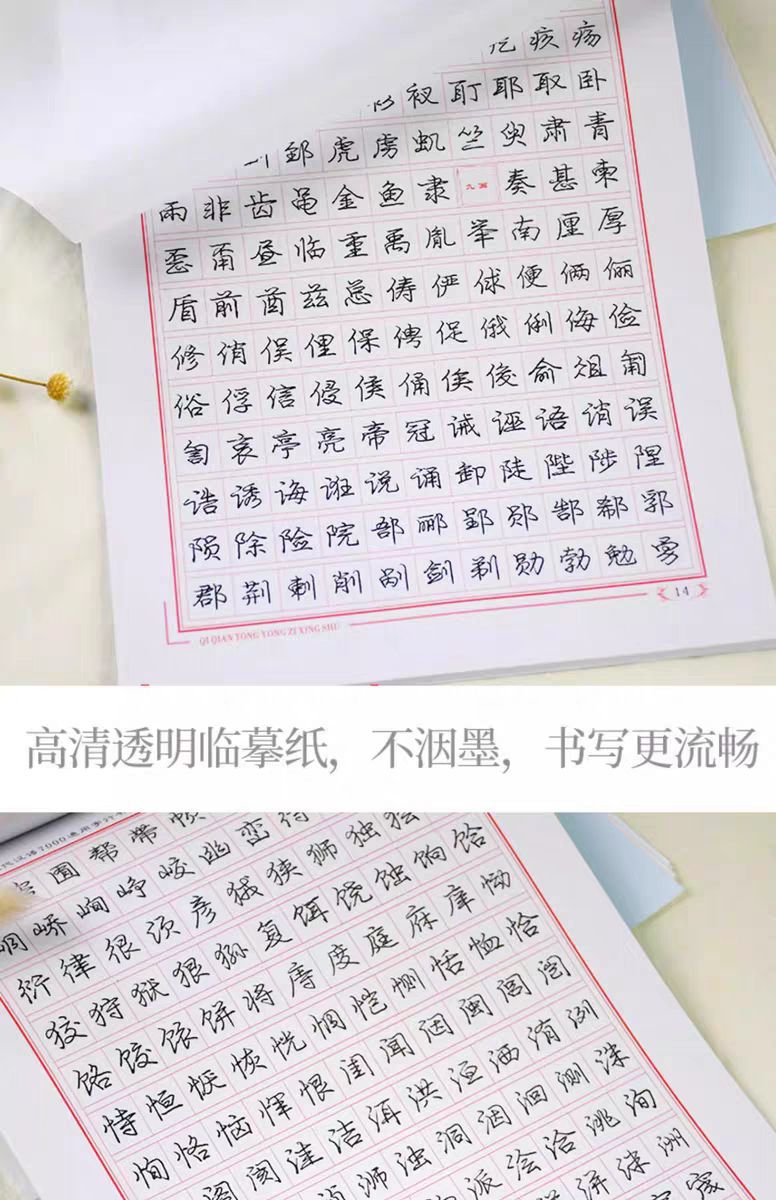 疙 痎 疡
衩 耵 耶 取 卧
郅 虎 虏 虬 竺 臾 肃 青
雨 非 齿 黾 金 鱼 隶 九画 奏 甚 柬
恶 甭 昼 临 重 禹 胤 举 南 厘 厚
盾 前 酋 兹 总 俦 俨 俅 便 俩 俪
修 俏 俣 俚 保 俜 促 俄 俐 侮 俭
俗 俘 信 侵 侯 俑 俟 俊 俞 俎 匍
訇 哀 亭 亮 帝 冠 诫 诬 语 诮 误
诰 诱 诲 诳 说 诵 卸 陡 陛 陟 陧
陨 除 险 院 郚 郦 郢 郧 郜 郗 郛
郡 荆 刺 削 剐 剑 剃 勋 勃 勉 勇
14
QI QIAN TONG YONG ZI XING SHU
高清透明临摹纸，不洇墨，书写更流畅
现代汉语7000通用字行
囿 帮 带 帧
峤 峋 峥 峧 幽 峦 待
衍 律 很 须 彦 狨 狭 狮 独 狯
狡 狩 狱 狠 狲 复 饵 饶 蚀 饷 饸
饹 饺 饻 饼 将 庤 度 庭 庥 庠 恸
恃 恒 恹 恢 恍 恫 恺 恻 恬 恤 恰
恂 恪 恼 恽 恨 闺 闻 闼 闽 闾 闿
阁 阂 洼 洁 洱 洪 洹 洒 洧 洌
浉 浊 洞 洇 洄 测 洙
派 浍 洽 洮 洵
洴 洣 洲